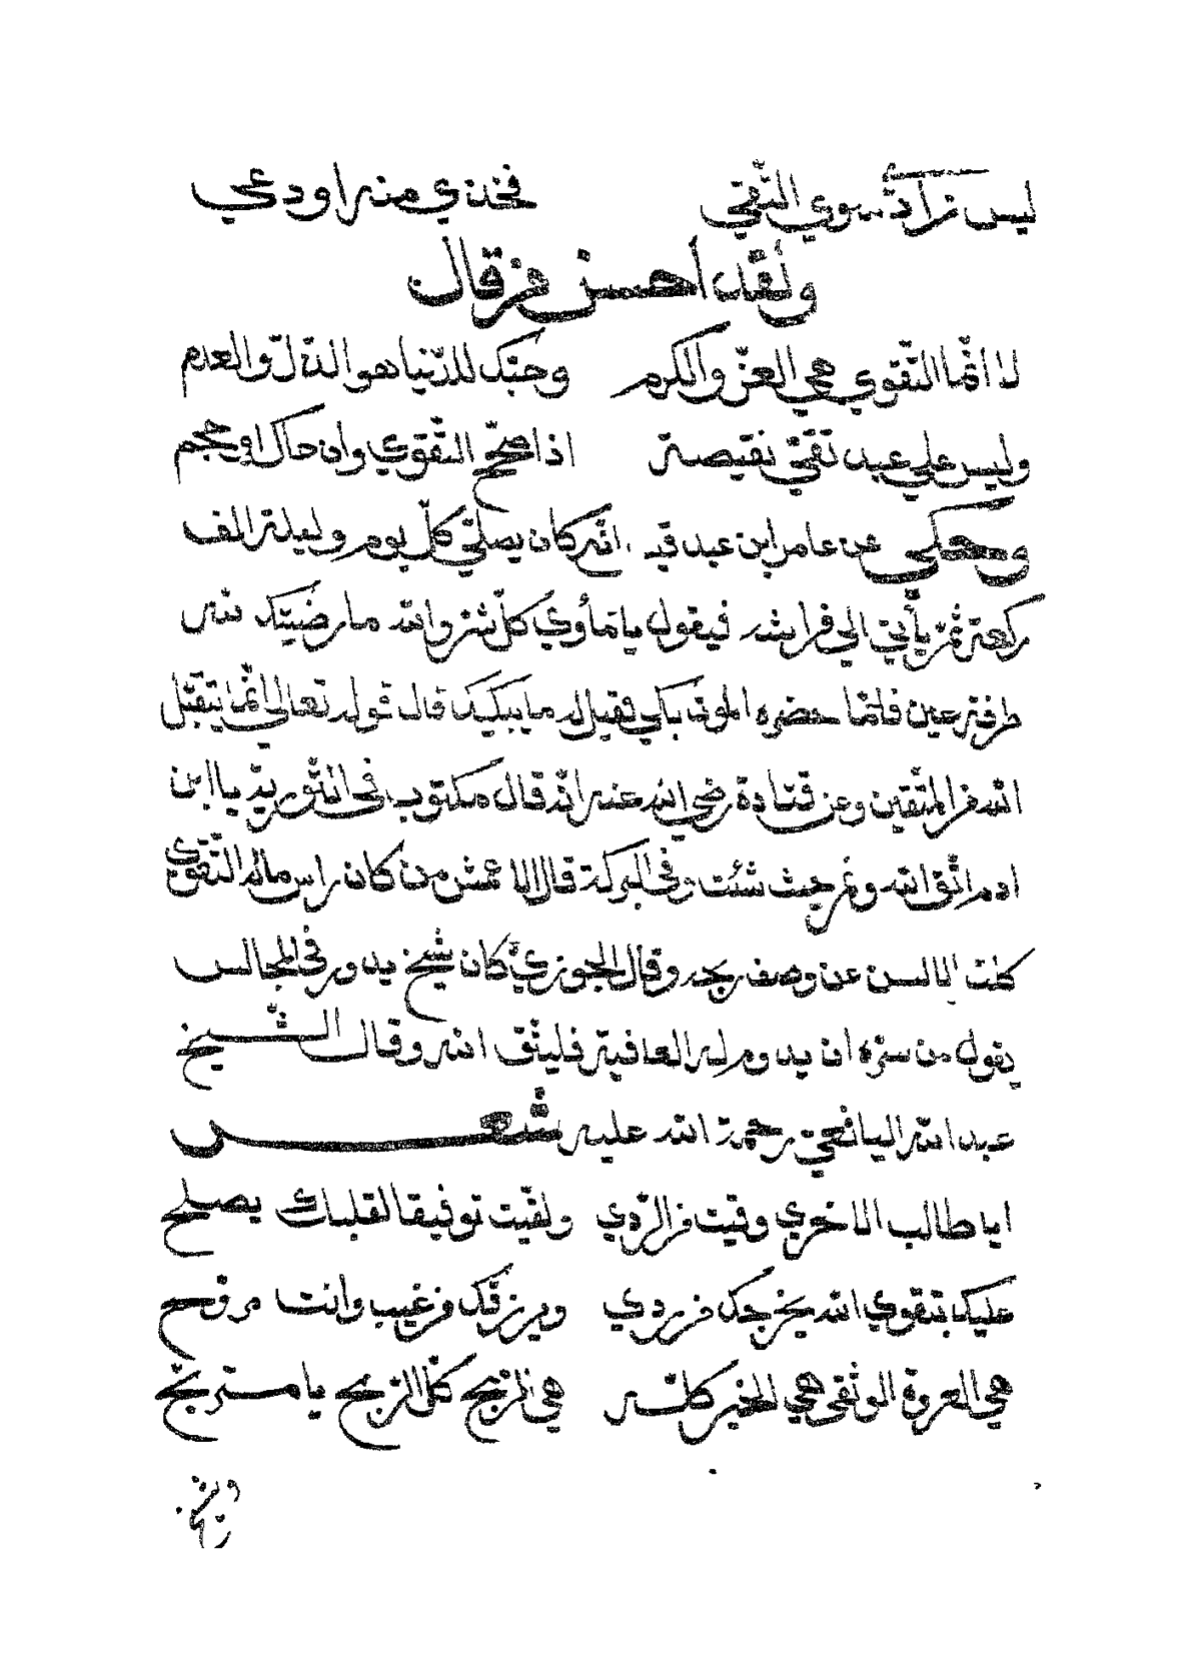 ليس زاد سوي التقي فخذي منه اودعي
ولقد أحسن من قال
لا انّما التّقوي هي العزّ والكرم وحبّك للدّنيا هو الذّلّ والعدم
وليس علي عبد تقيّ نقيصة اذا صحّح التّقوي وان حاك او حجم
وحكي عن عامر ابن عبد قيد انّه كان يصلّي كلّ يوم وليلة الف
ركعة ثمّ يأتي الي فراشه فيقول يا مأوي كلّ شرّ والله ما رضيتك لله
طرفة عين فلمّا حضره الموت بكي فقيل له ما يبكيك قال قوله تعالي انّما يتقبّل
الله من المتّقين وعن قتادة رضي الله عنه انّه قال مكتوب في التّورية يا ابن
ادم اتّق الله ونم حيث شئت وفي البركة قال الاعمش من كان راس ماله التّقوي
كلت الالسن عن وصف ربحه وقال الجوزيّ كان شيخ يدور في المجالس
يقول من سرّه ان يدوم له العافية فليتّق الله وقال الشّيخ
عبد الله اليافعي رحمة الله عليه شعر
ايا طالب الاخري وقيت من الرّدي ولقّيت توفيقا لقلبك يصلح
عليك بتقوي الله يخرجك من ردي ويرزقك من غيب وانت مروّح
هي العروة الوثقي هي الخير كلّه هي الرّبح كلّ الرّبح يا متربّح